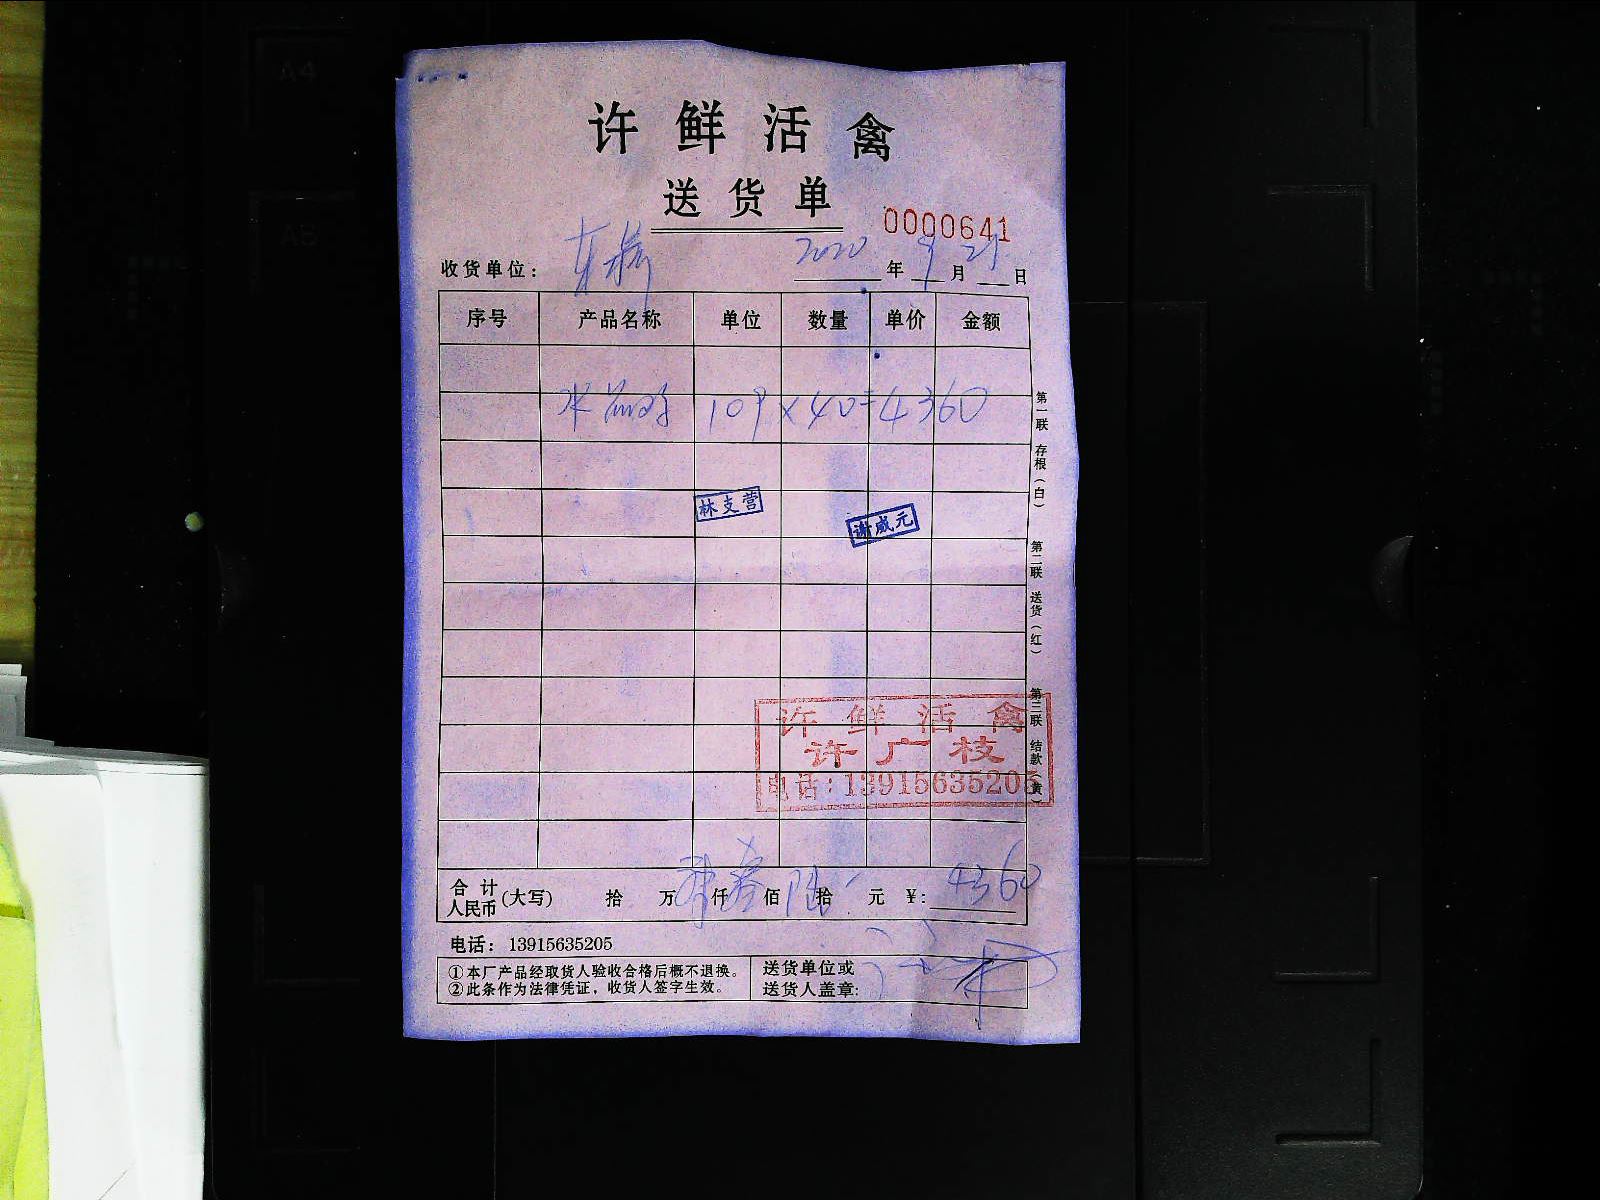 A4
A5
许鲜活禽
送货单
0000641
收货单位： 2020年9月21日
序号 产品名称 单位 数量 单价 金额
109×40=4360
林支营
谢咸元
许鲜活禽
许广枝
电话:13915635205
合计人民币(大写) 拾 万 肆 仟 叁 佰 陆 拾 元 ¥: 4360
电话：13915635205
①本厂产品经取货人验收合格后概不退换。
②此条作为法律凭证，收货人签字生效。
送货单位或
送货人盖章:
第一联 存根（白） 第二联 送货（红） 第三联 结款（黄）